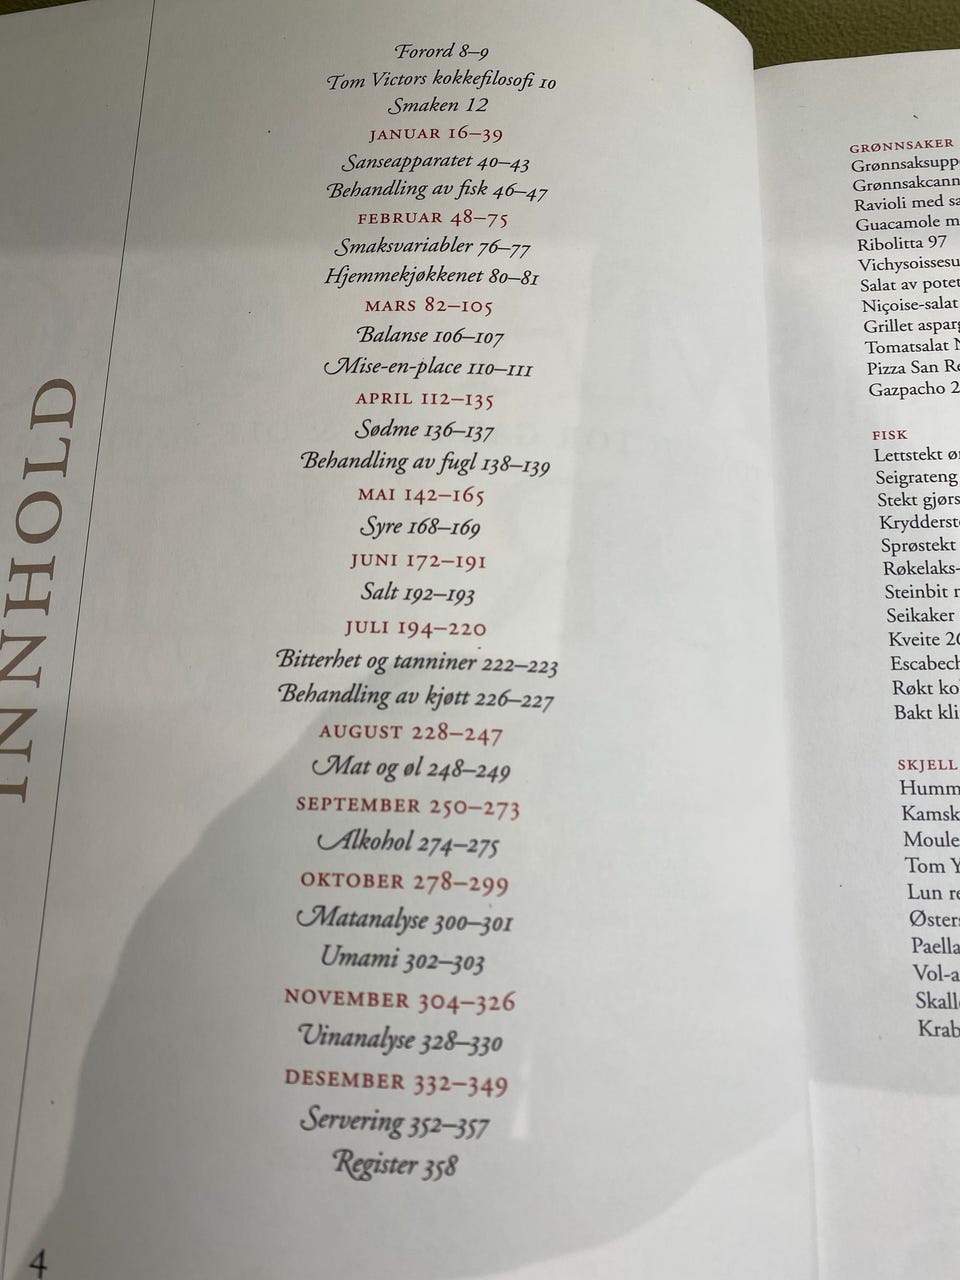 INNHOLD
Forord 8–9
Tom Victors kokkefilosofi 10
Smaken 12
JANUAR 16–39
Sanseapparatet 40–43
Behandling av fisk 46–47
FEBRUAR 48–75
Smaksvariabler 76–77
Hjemmekjøkkenet 80–81
MARS 82–105
Balanse 106–107
Mise-en-place 110–111
APRIL 112–135
Sødme 136–137
Behandling av fugl 138–139
MAI 142–165
Syre 168–169
JUNI 172–191
Salt 192–193
JULI 194–220
Bitterhet og tanniner 222–223
Behandling av kjøtt 226–227
AUGUST 228–247
Mat og øl 248–249
SEPTEMBER 250–273
Alkohol 274–275
OKTOBER 278–299
Matanalyse 300–301
Umami 302–303
NOVEMBER 304–326
Vinanalyse 328–330
DESEMBER 332–349
Servering 352–357
Register 358
4
GRØNNSAKER
Grønnsaksupp
Grønnsakcann
Ravioli med sa
Guacamole m
Ribolitta 97
Vichysoissesu
Salat av potet
Niçoise-salat
Grillet asparg
Tomatsalat N
Pizza San Re
Gazpacho 2
FISK
Lettstekt ør
Seigrateng
Stekt gjørs
Krydderste
Sprøstekt
Røkelaks-
Steinbit r
Seikaker
Kveite 26
Escabech
Røkt kol
Bakt kli
SKJELL
Humm
Kamsk
Moule
Tom Y
Lun re
Østers
Paella
Vol-a
Skall
Krab